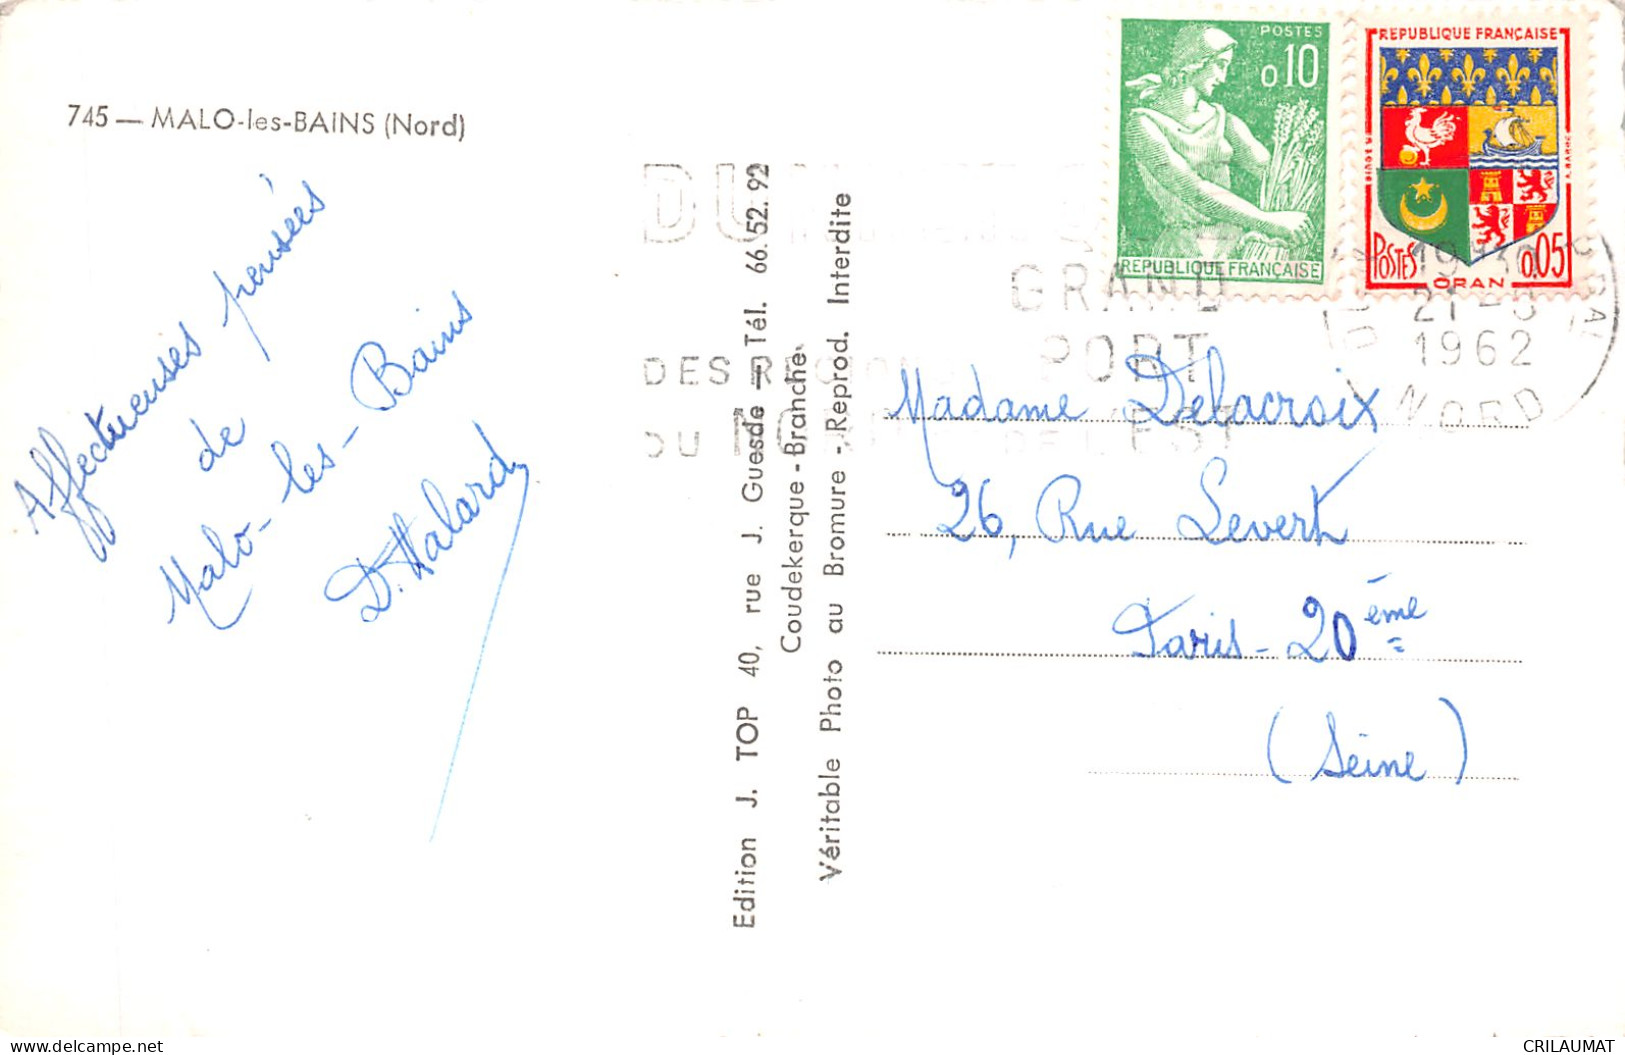 745 — MALO-les-BAINS (Nord)
Affectueuses pensées
de
Malo-les-Bains
D. Halard
Edition J. TOP 40, rue J. Guesde — Tél. 66.52.92
Coudekerque-Branche
Véritable Photo au Bromure - Reprod. Interdite
POSTES
0,10
REPUBLIQUE FRANÇAISE
REPUBLIQUE FRANÇAISE
POSTES
0,05
ORAN
GRAND
PORT
DE L'EST
DES
DU
19H30
21-
1962
NORD
Madame Delacroix
26, Rue Levert
Paris-20ème
(Seine)
www.delcampe.net
CRILAUMAT